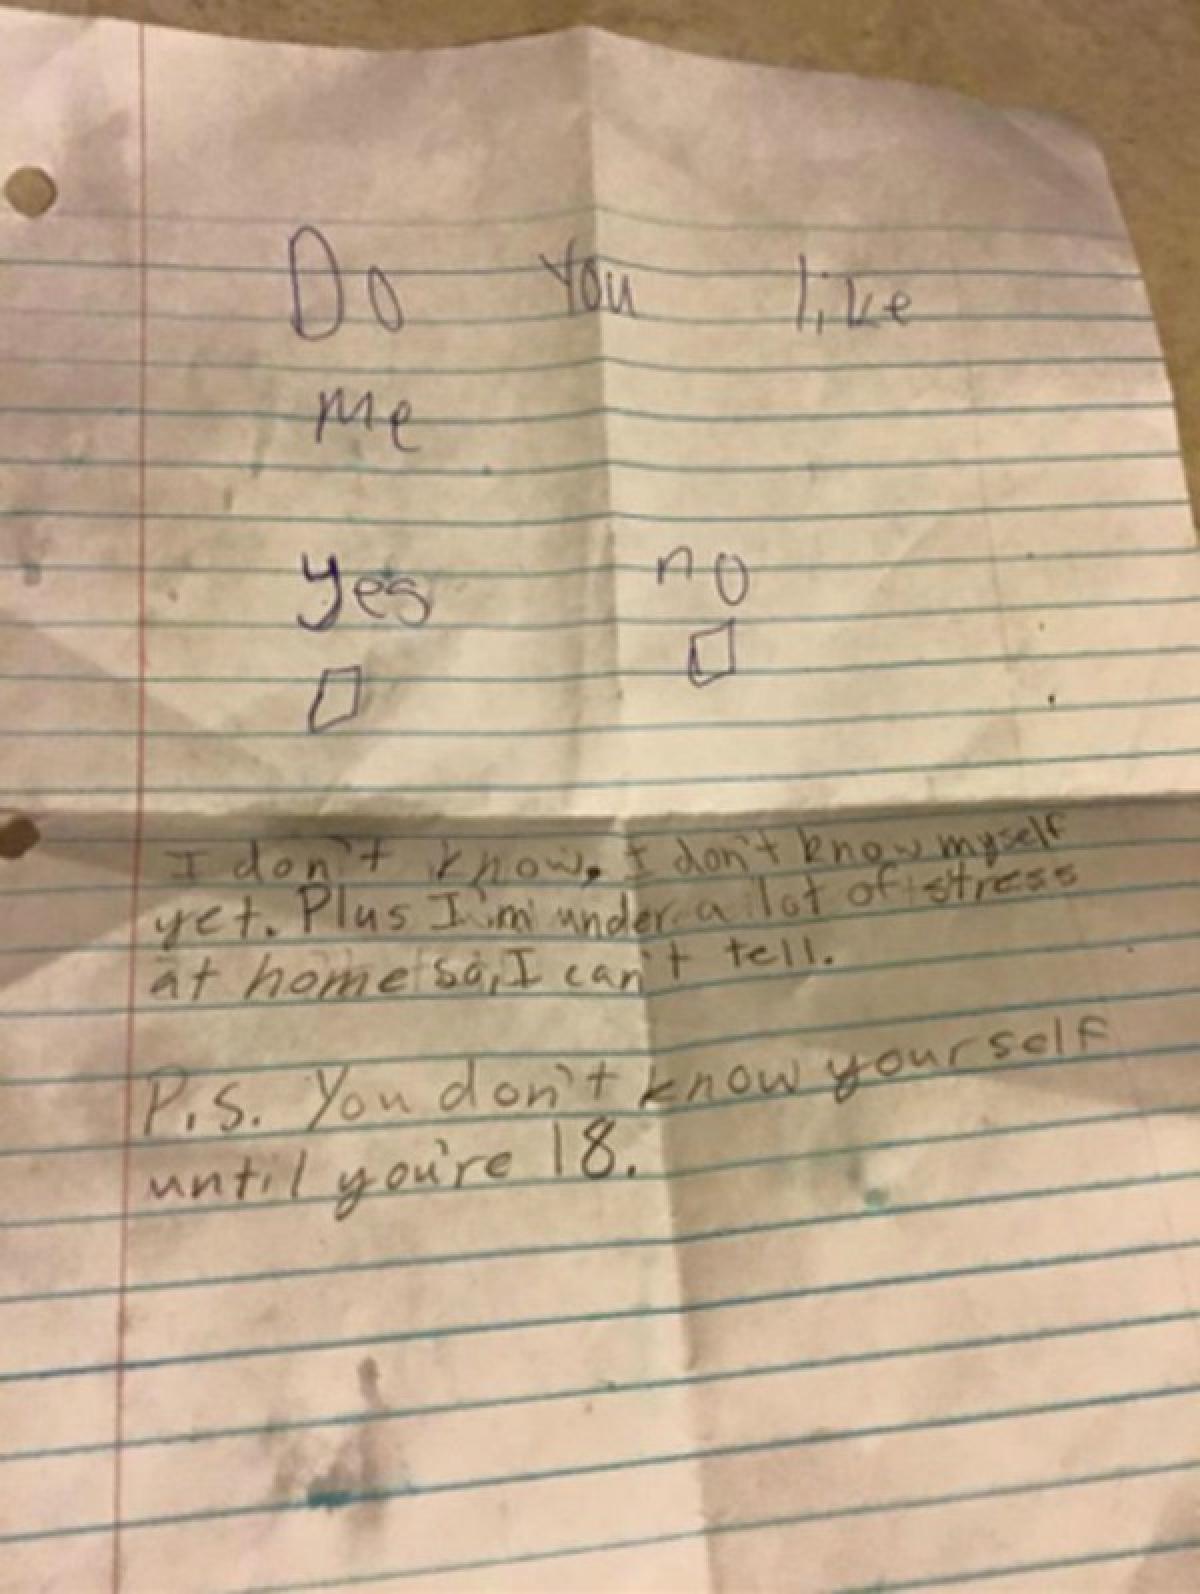 Do you like
me
yes no
I don't know. I don't know myself
yet. Plus I'm under a lot of stress
at home so, I can't tell.
P.S. You don't know yourself
until you're 18.